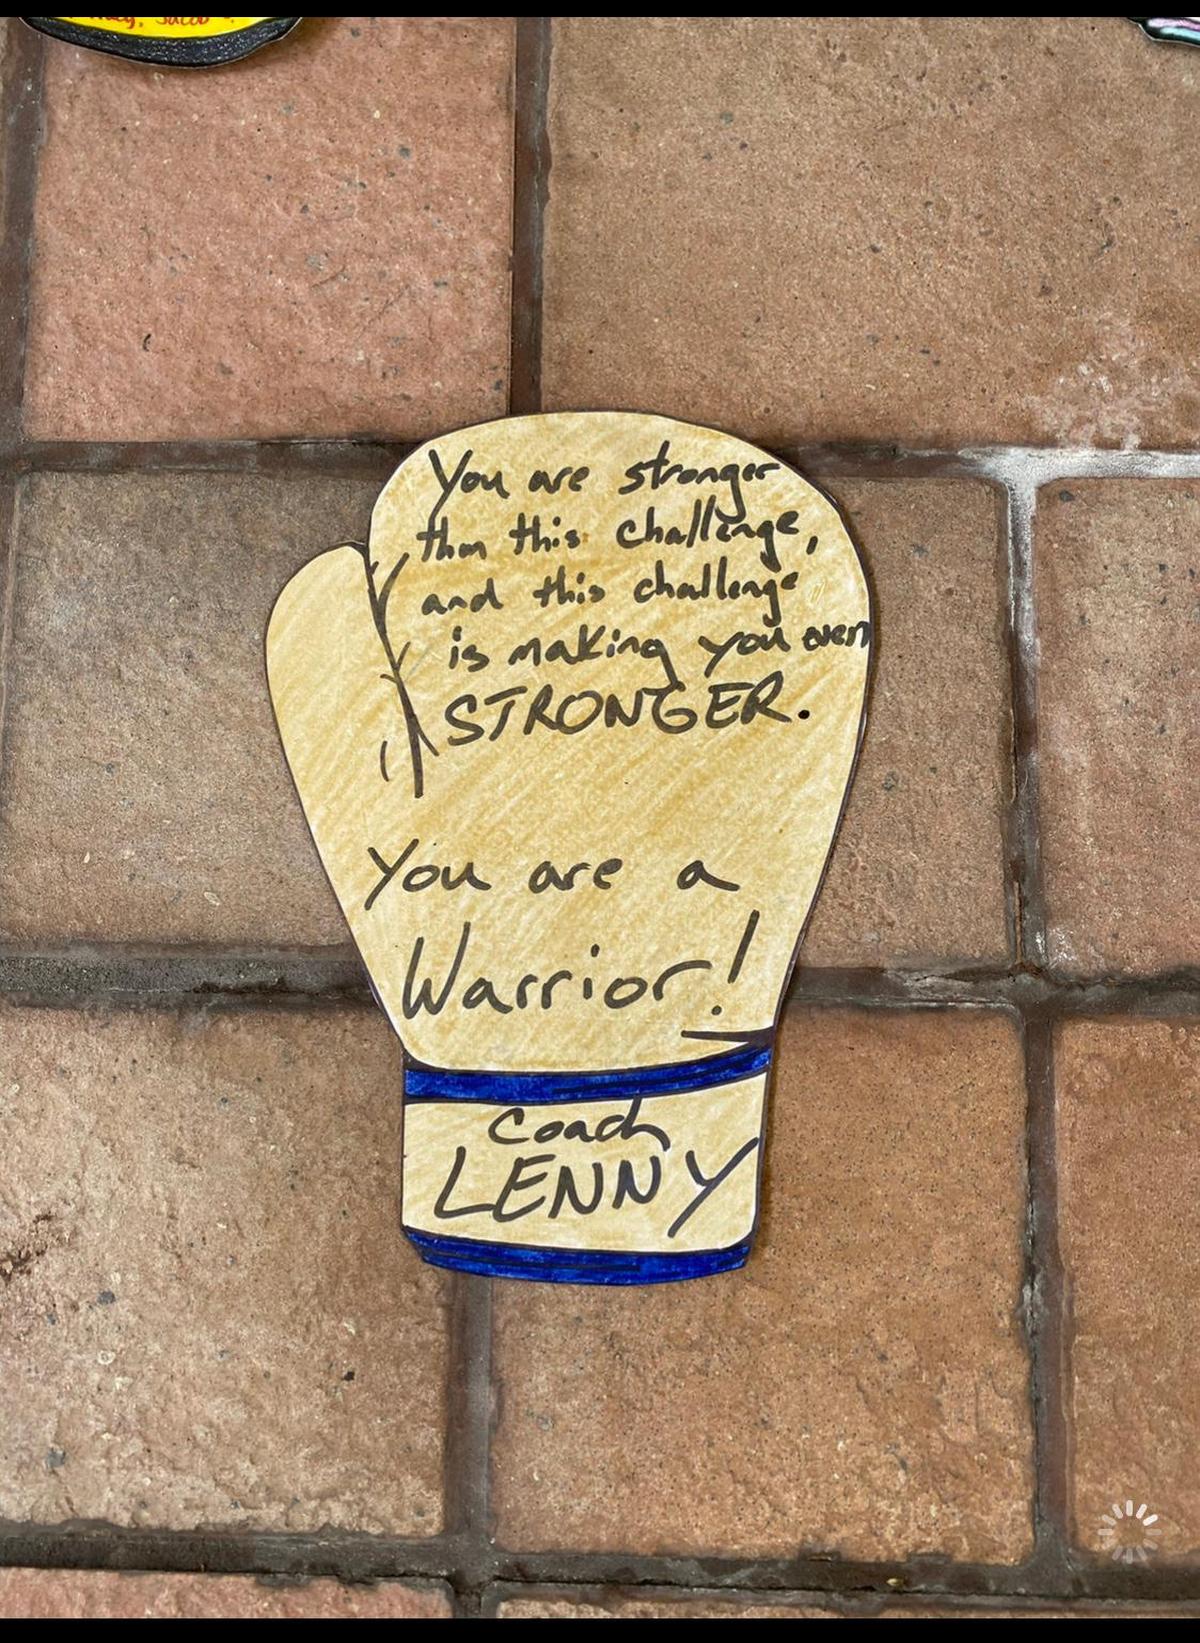 You are stronger
than this challenge,
and this challenge
is making you even
STRONGER.
You are a
Warrior!
Coach
LENNY